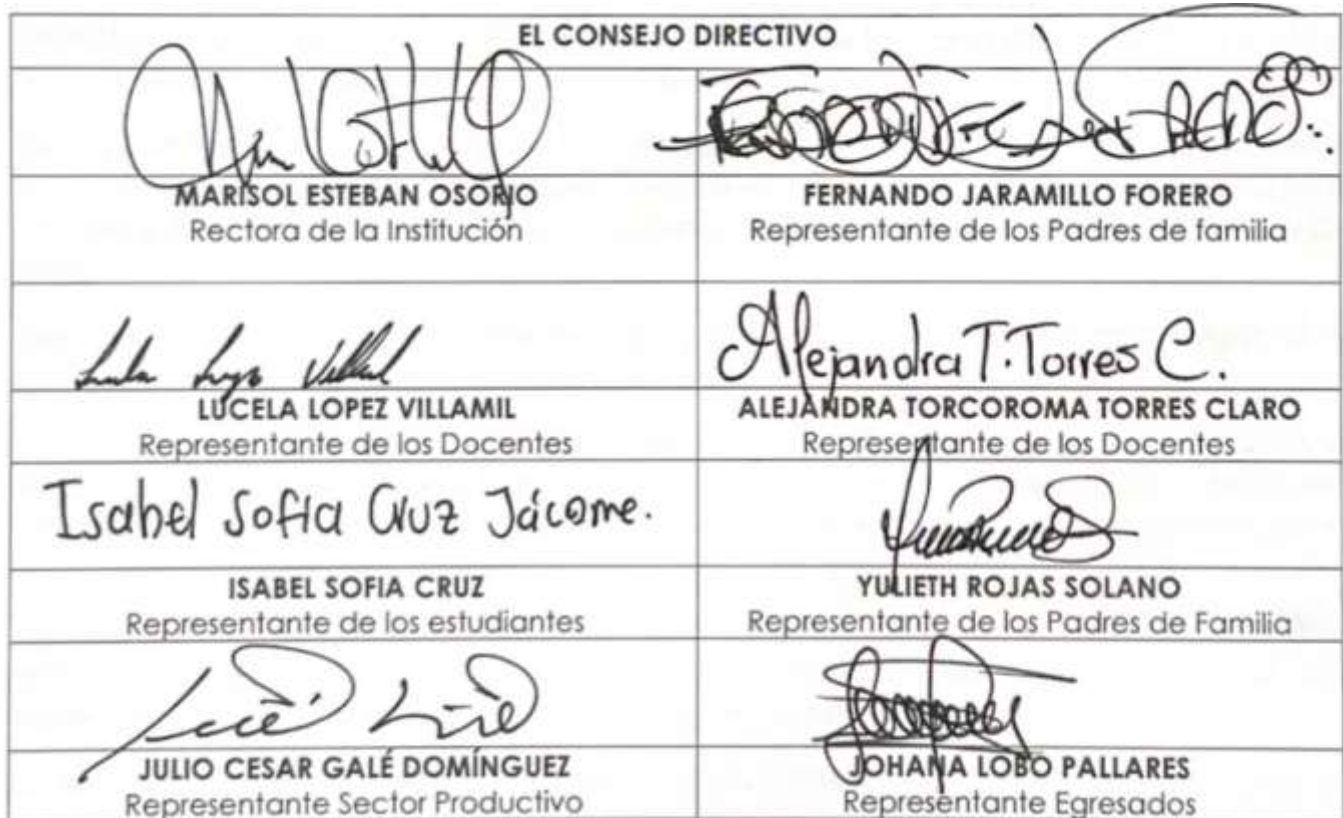 EL CONSEJO DIRECTIVO
MARISOL ESTEBAN OSORIO
Rectora de la Institución
FERNANDO JARAMILLO FORERO
Representante de los Padres de familia
Alejandra T. Torres C.
LUCELA LOPEZ VILLAMIL
Representante de los Docentes
ALEJANDRA TORCOROMA TORRES CLARO
Representante de los Docentes
Isabel Sofia Cruz Jácome.
ISABEL SOFIA CRUZ
Representante de los estudiantes
YULIETH ROJAS SOLANO
Representante de los Padres de Familia
JULIO CESAR GALÉ DOMÍNGUEZ
Representante Sector Productivo
JOHANA LOBO PALLARES
Representante Egresados